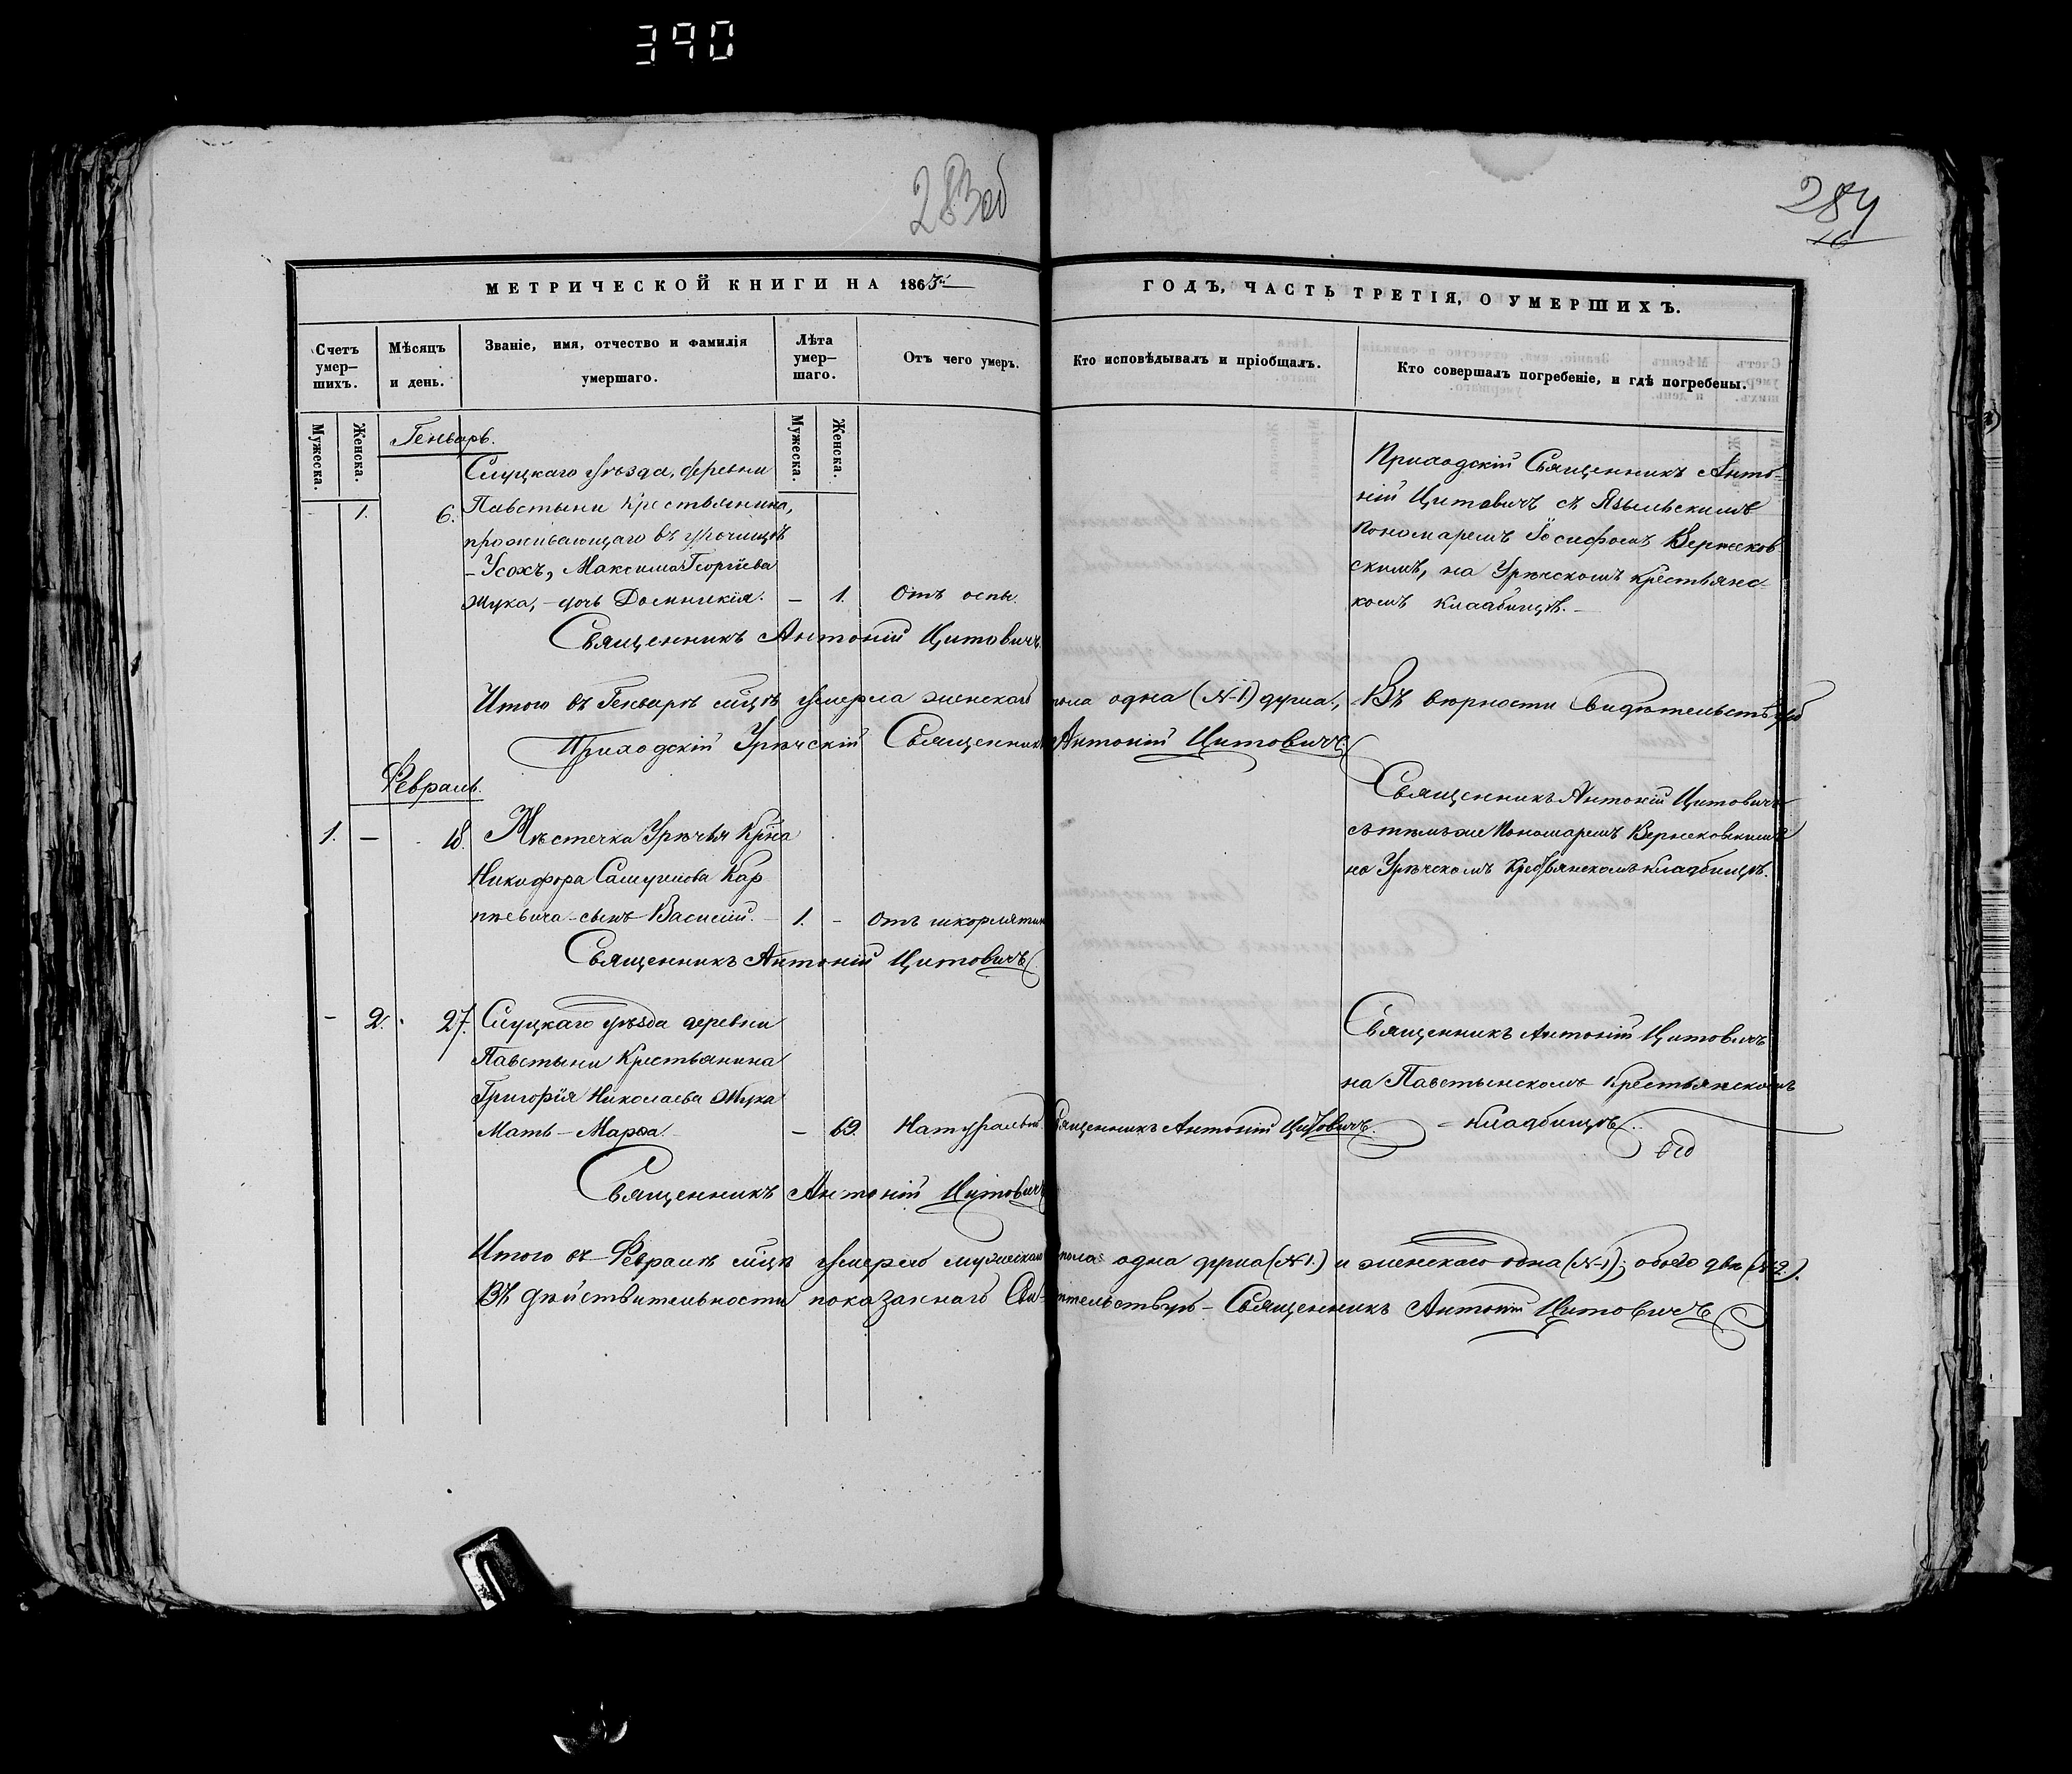 390
283об
284
МЕТРИЧЕСКОЙ КНИГИ НА 1863й
ГОДЪ, ЧАСТЬ ТРЕТІЯ, О УМЕРШИХЪ.
Счетъ умер-
шихъ.
Мѣсяцъ
и день.
Званіе, имя, отчество и фамилія
умершаго.
Лѣта
умер-
шаго.
Отъ чего умеръ.
Кто исповѣдывалъ и пріобщалъ.
Кто совершалъ погребеніе, и гдѣ погребены.
Мужеска.
Женска.
Мужеска.
Женска.
Генварь.
Слуцкаго уѣзда, деревни
1. 6. Павстыни Крестьянина,
проживающаго въ урочищѣ
Усохъ, Максима Георгіева
Жука, - дочь Домникія. - 1. Отъ оспы.
Приходскій Священникъ Анто-
ній Цитовичъ съ Языльскимъ
Пономаремъ Іосифомъ Вержеков-
скимъ, на Урѣчскомъ крестьянс-
комъ кладбищѣ. -
Священникъ Антоній Цитовичъ
Итого въ Генварѣ мцѣ умерла женскаго пола одна (№1) душа, Въ вѣрности свидѣтельствую
Приходскій Урѣчскій Священникъ Антоній Цитовичъ
Февраль.
1. - 18. Мѣстечка Урѣчья Крна
Никифора Самуилова Кар
пѣевича - сынъ Василій. - 1. - Отъ шкорлятин
Священникъ Антоній Цитовичъ
съ тѣмъ же Пономаремъ Вержековскимъ
на Урѣчскомъ Крестьянскомъ кладбищѣ.
Священникъ Антоній Цитовичъ
- 2. 27. Слуцкаго уѣзда деревни
Павстыни Крестьянина
Григорія Николаева Жука
Мать - Марѳа. - 69. Натуральной Священникъ Антоній Цитовичъ.
Священникъ Антоній Цитовичъ
на Павстынскомъ Крестьянскомъ
- кладбищѣ.
Священникъ Антоній Цитовичъ
Итого въ Февралѣ мцѣ умерло мужескаго пола одна душа (№1.) и женскаго одна (№1); обоего двѣ (№2.).
Въ дѣйствительности показаннаго Свидѣтельствую - Священникъ Антоній Цитовичъ